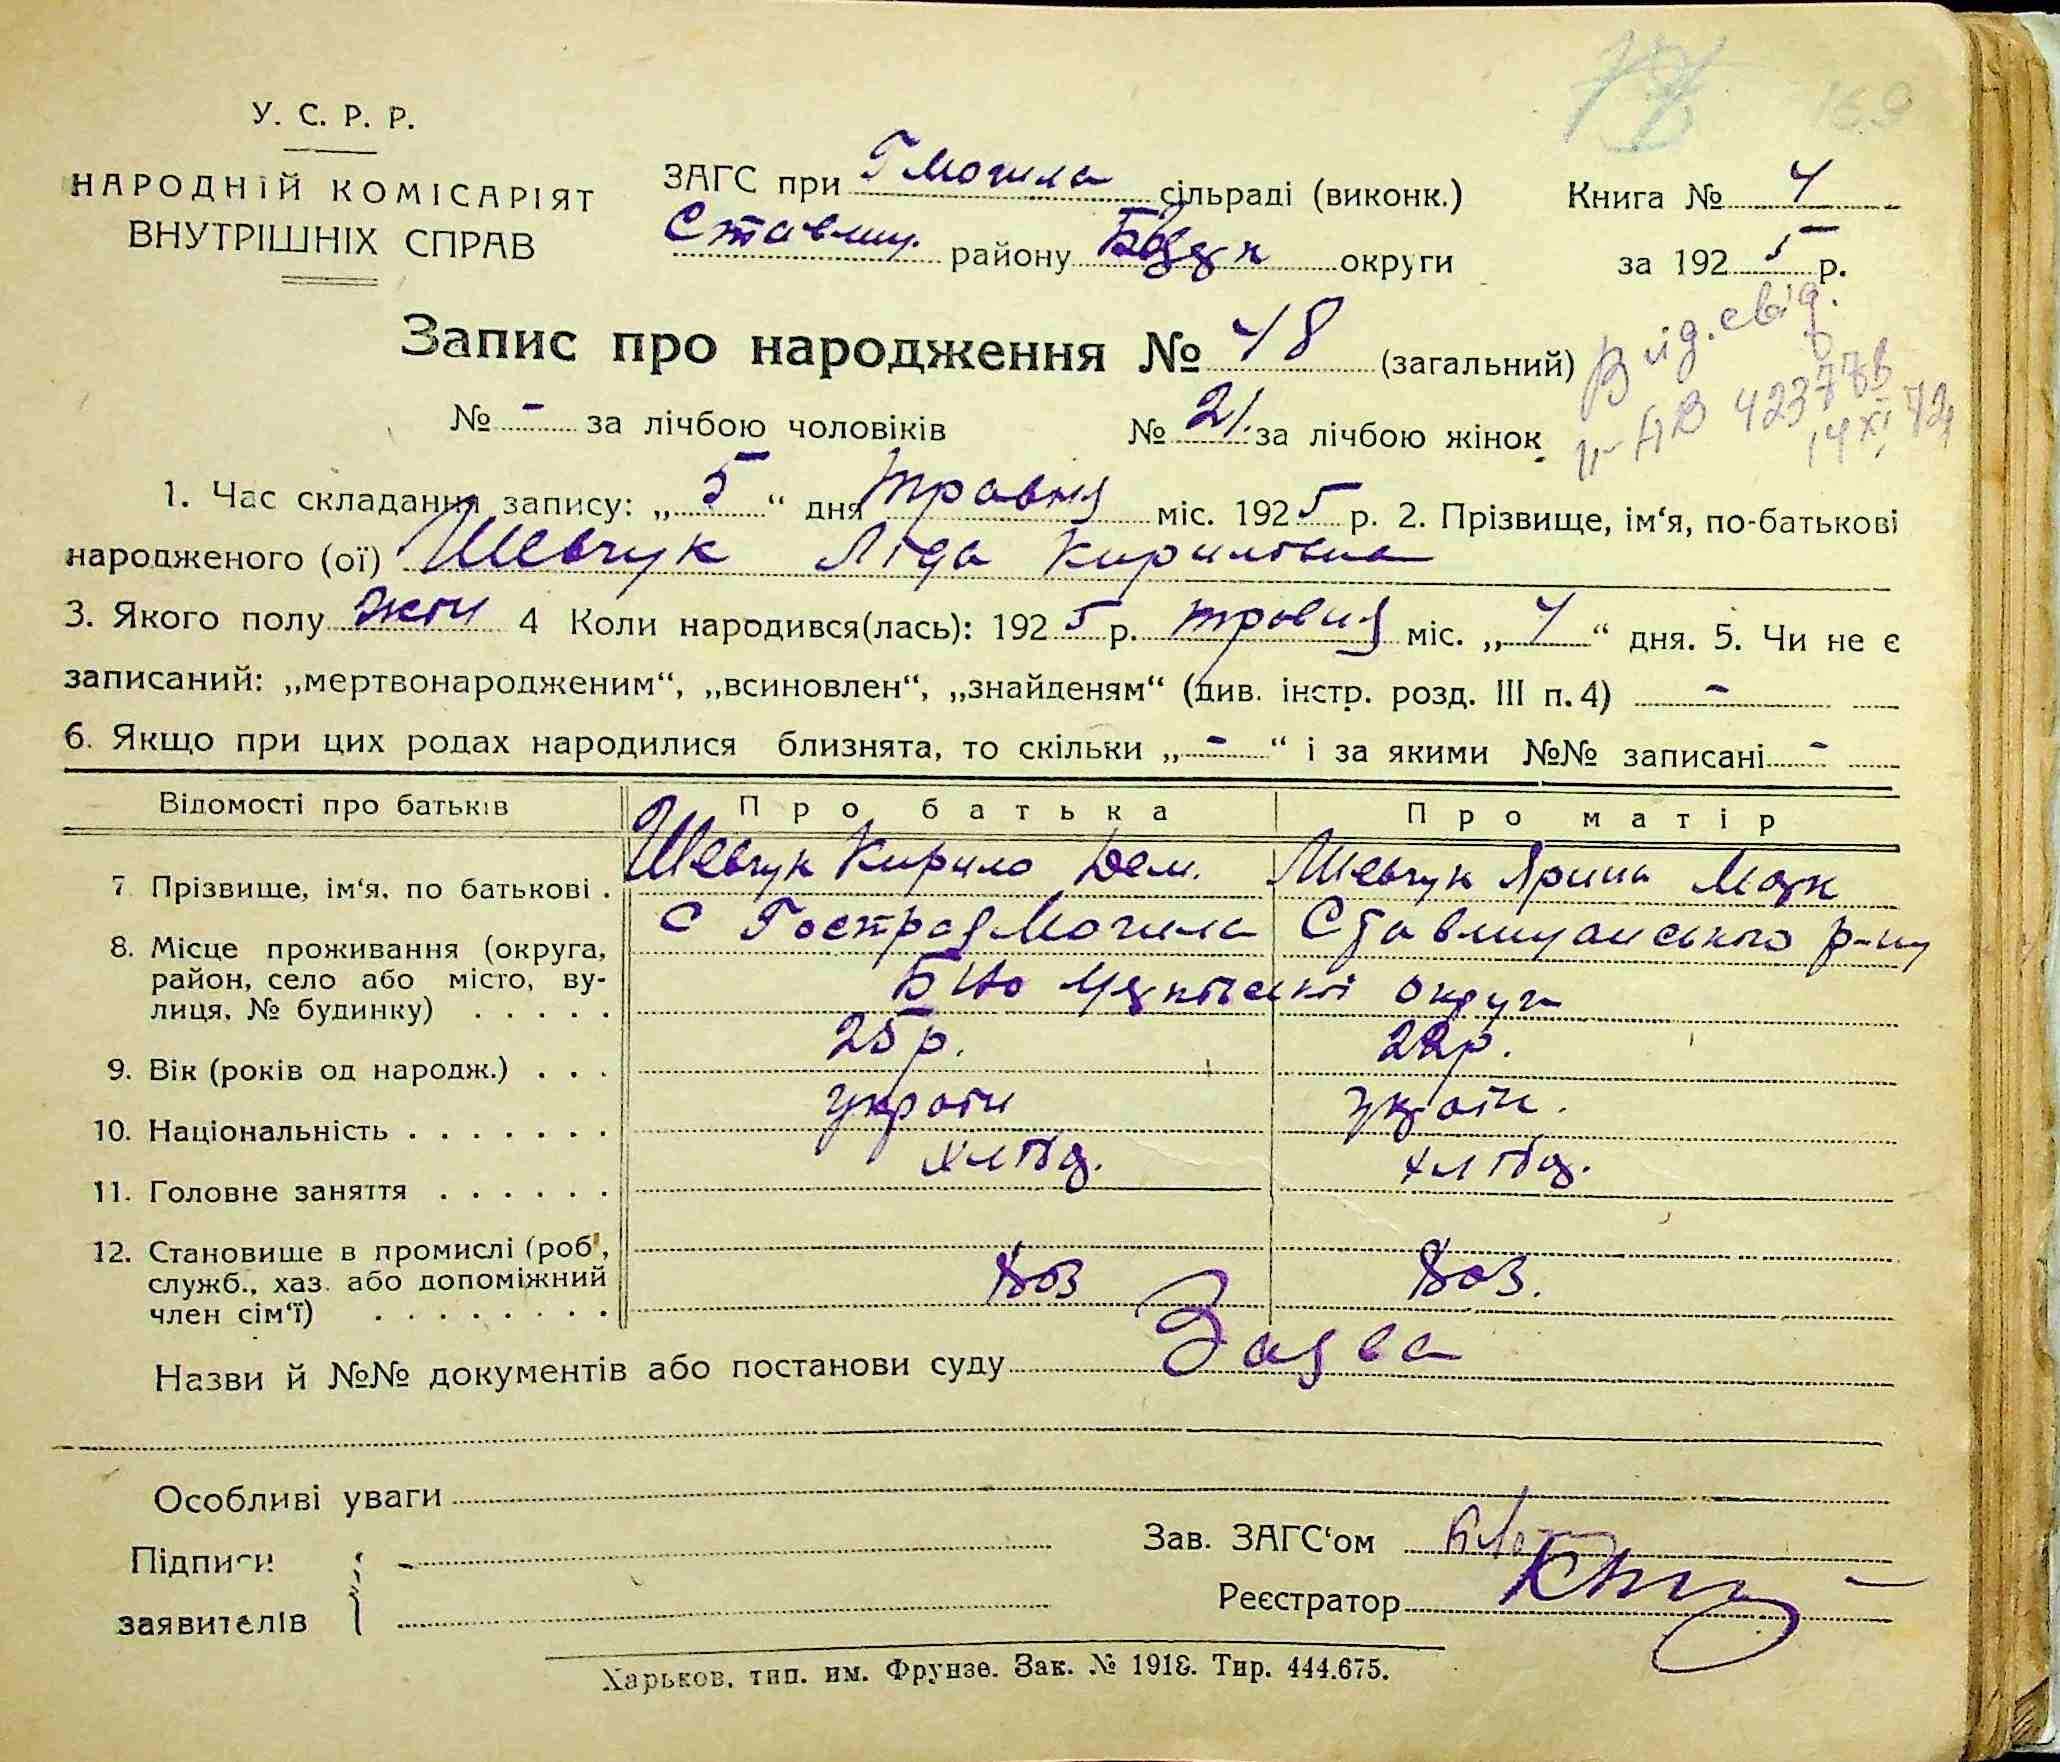 169
У. С. Р. Р.
НАРОДНІЙ КОМІСАРІЯТ
ВНУТРІШНІХ СПРАВ
ЗАГС при Г Могила сільраді (виконк.)
Ставищ. району Б округи
Книга № 4
за 1925 р.
Запис про народження № 48 (загальний)
Вид. свід.
423776
14 XI 72
№ - за лічбою чоловіків № 21. за лічбою жінок
1. Час складання запису: „ 5 “ дня травня міс. 1925 р. 2. Прізвище, ім‘я, по-батькові
народженого (ої) Шевчук Ліда Кирилівна
3. Якого полу жін 4 Коли народився(лась): 1925 р. травня міс. „ 4 “ дня. 5. Чи не є
записаний: „мертвонародженим“, „всиновлен“, „знайденям“ (див. інстр. розд. III п. 4) -
6. Якщо при цих родах народилися близнята, то скільки „ - “ і за якими №№ записані -
Відомості про батьків Про батька Про матір
7 Прізвище, ім‘я, по батькові . Шевчук Кирило Дем. Шевчук Ярина Марк
8. Місце проживання (округа,
район, село або місто, ву-
лиця, № будинку) . . . . .
с Гостра Могила Ставищанського р-ну
Б округи
9. Вік (років од народж.) . . . 25 р. 22 р.
10. Національність . . . . . . . україн україн.
11. Головне заняття . . . . . . хліб. хліб.
12. Становище в промислі (роб.,
служб., хаз. або допоміжний
член сім‘ї) . . . . . . . .
хоз хоз.
Назви й №№ документів або постанови суду Заява
Особливі уваги
Підписи
заявителів
Зав. ЗАГС‘ом
Реєстратор
Харьков, тип. им. Фрунзе. Зак. № 1918. Тир. 444.675.